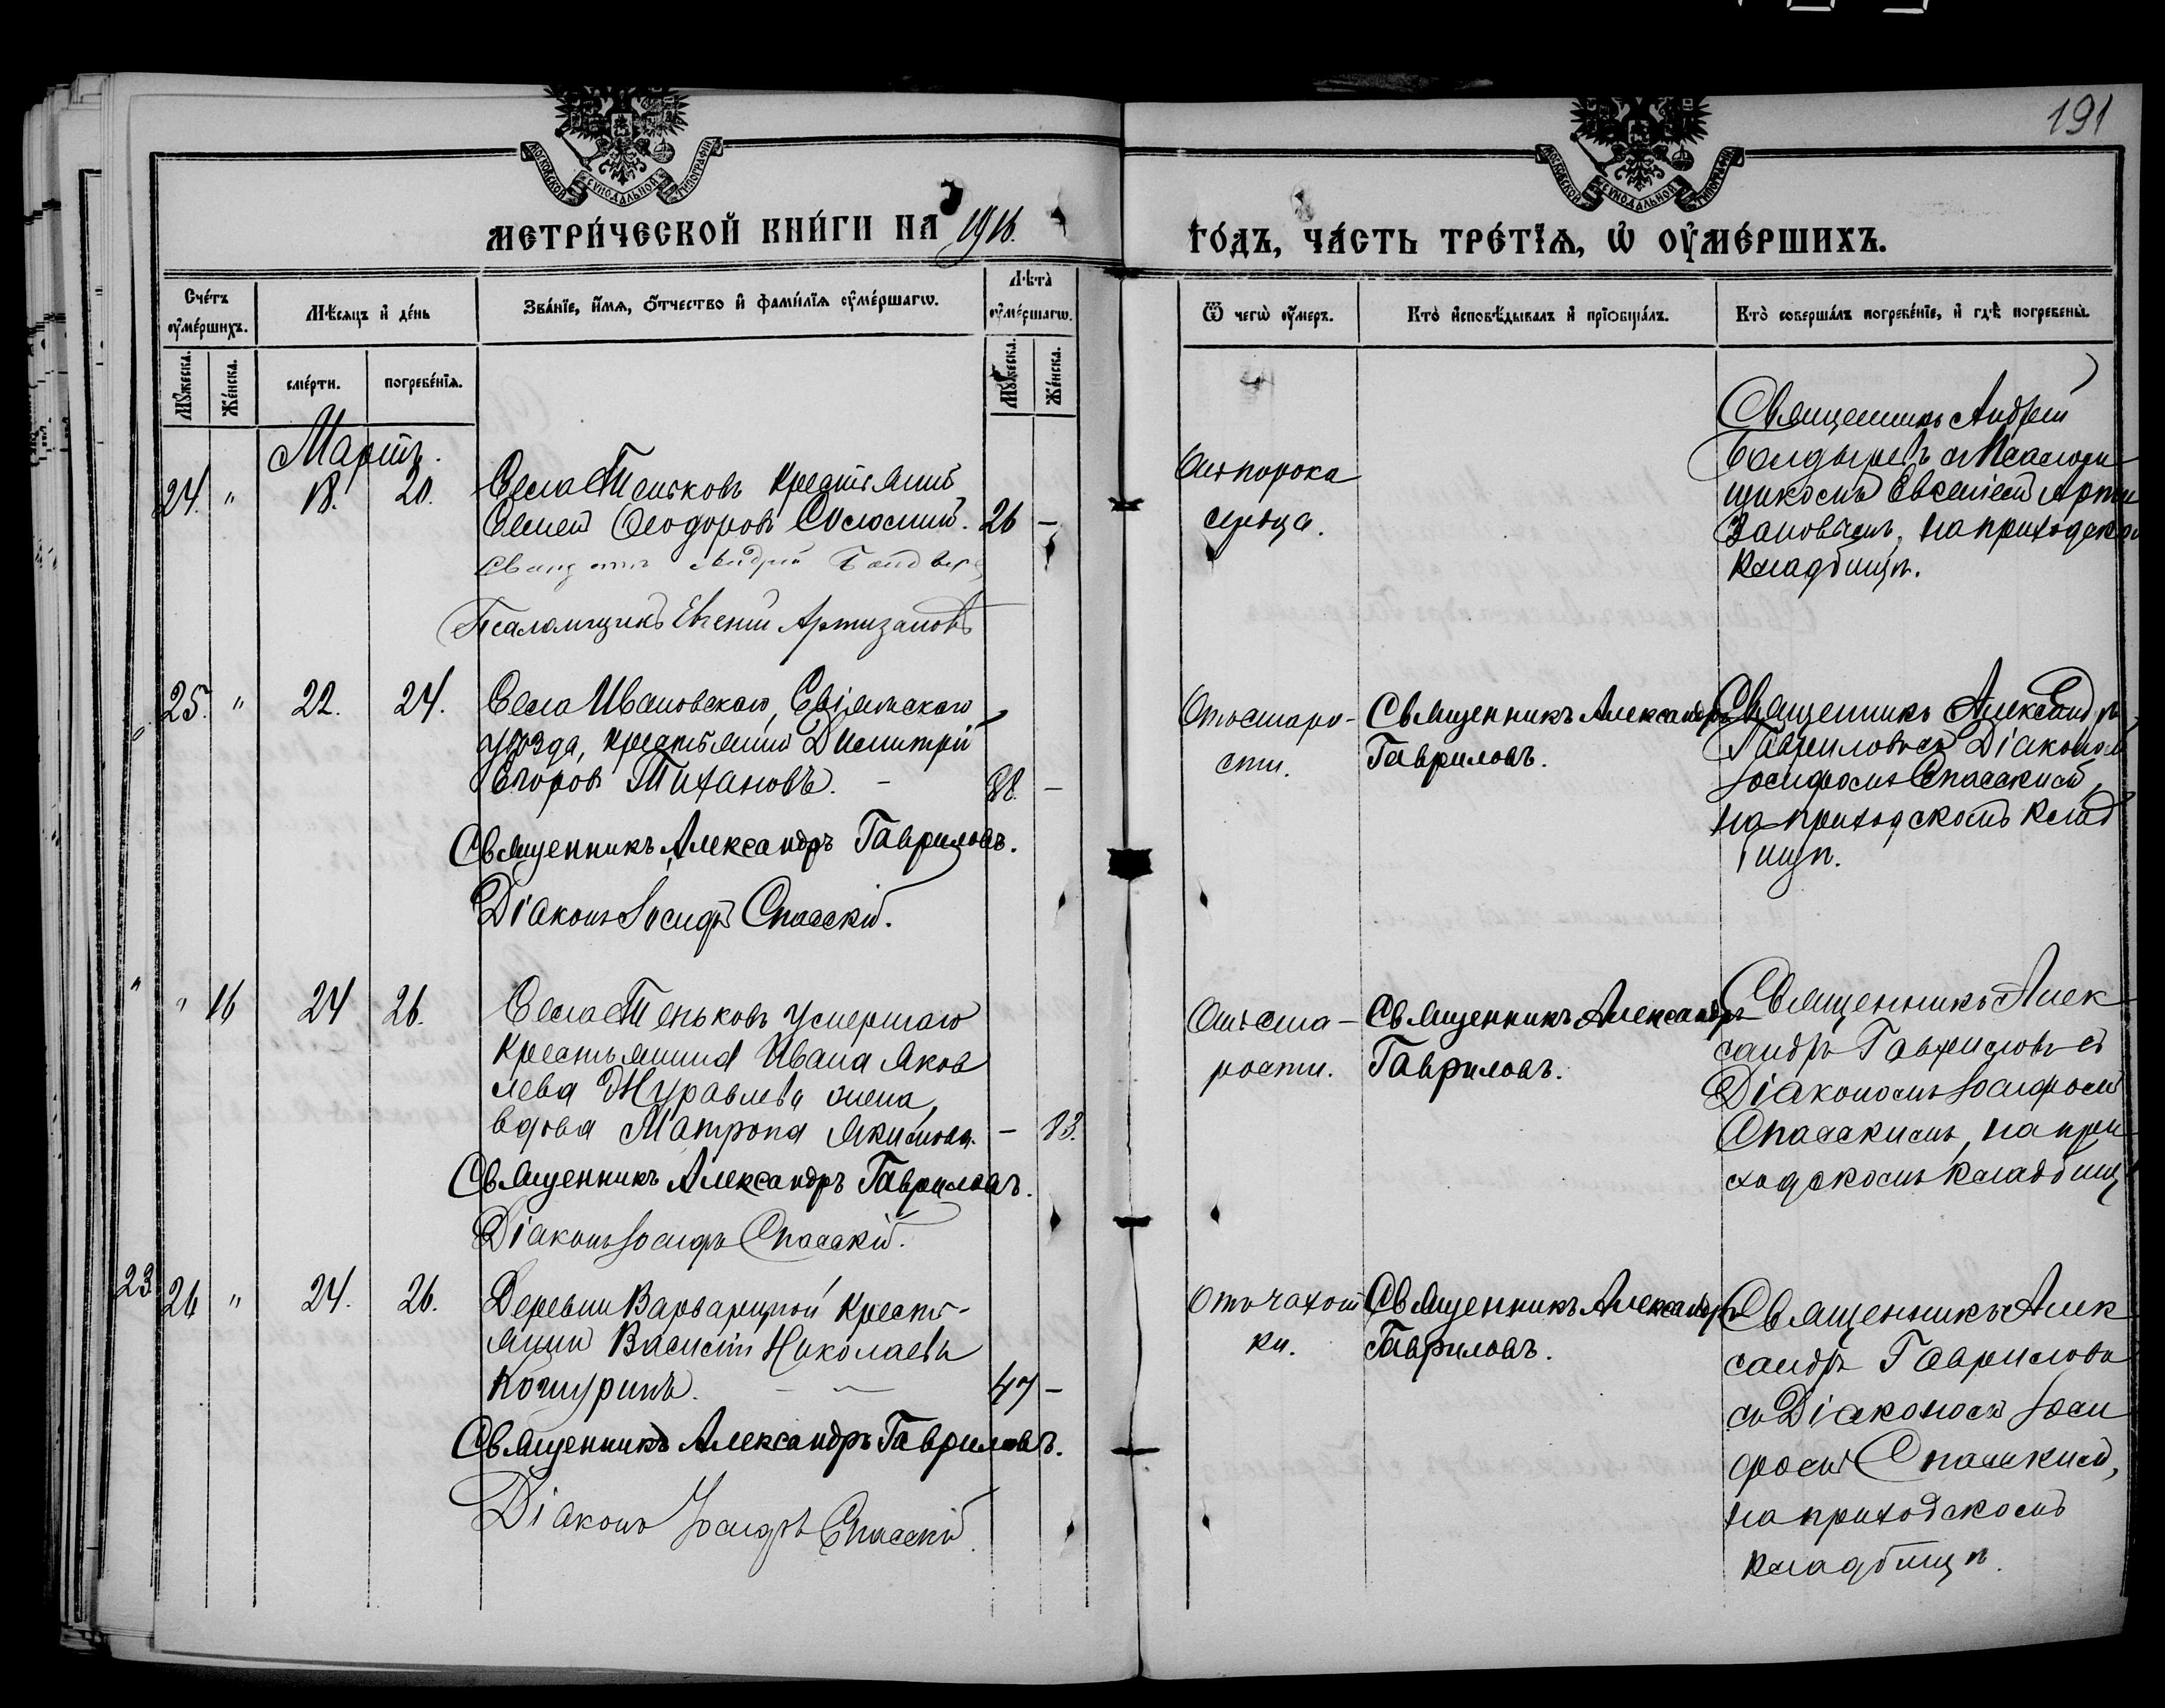 191
МОСКОВСКОЙ СУНОДАЛЬНОЙ ТИПОГРАФІИ
МОСКОВСКОЙ СУНОДАЛЬНОЙ ТИПОГРАФІИ
МЕТРИ́ЧЕСКОЙ КНИ́ГИ НА 1916.
ГО́ДЪ, ЧА́СТЬ ТРЕ́ТЇѦ, Ѡ҆ ОУ҆МЕ́РШИХЪ.
Сче́тъ оу҆ме́ршихъ.
Мꙋ́жеска.
Же́нска.
Мѣ́сѧцъ и҆ де́нь
сме́рти.
погребе́нїѧ.
Зва́нїе, и҆́мѧ, ѻ҆́тчество и҆ фами́лїѧ оу҆ме́ршагѡ.
Лѣ́та оу҆ме́ршагѡ.
Мꙋ́жеска.
Же́нска.
Ѿ чегѡ̀ оу҆́меръ.
Кто̀ и҆сповѣ́дывалъ и҆ прїѡбща́лъ.
Кто̀ соверша́лъ погребе́нїе, и҆ гдѣ̀ погребены̀.
Мартъ.
24. " 18. 20.
Села Теньковъ крестьянинъ
Ѳеодоровъ
26 –
Священникъ Андрей
Псаломщикъ Евгеній Артизановъ
Отъ порока
сердца.
Священникъ Андрей
Болдыревъ съ Псаломщикомъ Евгеніемъ Арти
зановымъ, на приходском
кладбищѣ.
25. " 22. 24.
Села Ивановскаго, Свіяжскаго
уѣзда, крестьянинъ Димитрій
Егоровъ Тихановъ. –
88. –
Священникъ Александръ Гавриловъ.
Діаконъ Іосифъ Спасскій.
Отъ старо-
сти.
Священникъ Александръ
Гавриловъ.
Священникъ Александръ
Гавриловъ съ Діакономъ
Іосифомъ Спасскимъ,
на приходскомъ клад
бищѣ.
" 16 24 26.
Села Теньковъ умершаго
крестьянина Ивана Яков
лева Журавлева жена,
вдова Матрона Якимова.
– 83.
Священникъ Александръ Гавриловъ.
Діаконъ Іосифъ Спасскій.
Отъ ста-
рости.
Священникъ Александръ
Гавриловъ.
Священникъ Алек
сандръ Гавриловъ съ
Діакономъ Іосифомъ
Спасскимъ, на при
ходскомъ кладбищ
23
26 " 24. 26.
Деревни Варвариной крестьянинъ Василій Николаевъ
Кошуринъ. – –
47 –
Священникъ Александръ Гавриловъ.
Діаконъ Іосифъ Спасскій
Отъ чахот
ки.
Священникъ Александръ
Гавриловъ.
Священникъ Алек
сандръ Гавриловъ
съ Діакономъ Іоси
фомъ Спасскимъ,
на приходскомъ
кладбищѣ.